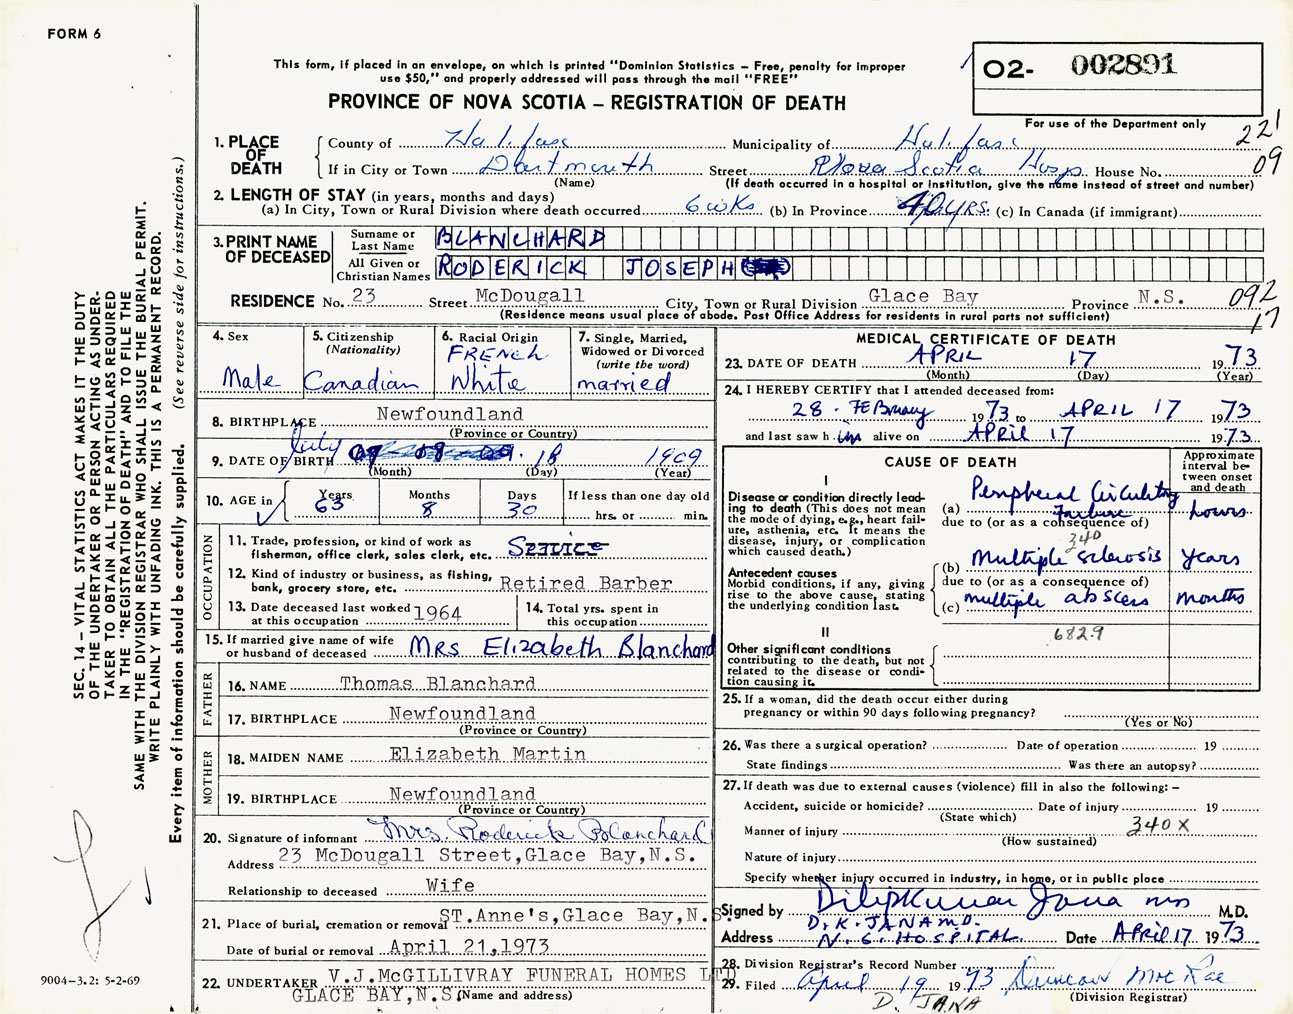 FORM 6
This form, if placed in an envelope, on which is printed "Dominion Statistics – Free, penalty for improper
use $50," and properly addressed will pass through the mail "FREE"
PROVINCE OF NOVA SCOTIA – REGISTRATION OF DEATH
O2- 002891
For use of the Department only
221
09
1. PLACE OF DEATH
County of Halifax Municipality of Halifax
If in City or Town Dartmouth Street Nova Scotia Hosp House No.
(Name) (If death occurred in a hospital or institution, give the name instead of street and number)
2. LENGTH OF STAY (in years, months and days)
(a) In City, Town or Rural Division where death occurred 6 wks (b) In Province 40 YRS. (c) In Canada (if immigrant)
3. PRINT NAME OF DECEASED
Surname or Last Name BLANCHARD
All Given or Christian Names RODERICK JOSEPH
RESIDENCE No. 23 Street McDougall City, Town or Rural Division Glace Bay Province N.S.
(Residence means usual place of abode. Post Office Address for residents in rural parts not sufficient)
092
17
4. Sex
Male
5. Citizenship
(Nationality)
Canadian
6. Racial Origin
FRENCH
White
7. Single, Married,
Widowed or Divorced
(write the word)
married
8. BIRTHPLACE Newfoundland
(Province or Country)
9. DATE OF BIRTH July 18 1909
(Month) (Day) (Year)
10. AGE in
Years Months Days If less than one day old
63 8 30 hrs. or min.
OCCUPATION
11. Trade, profession, or kind of work as
fisherman, office clerk, sales clerk, etc. Service
12. Kind of industry or business, as fishing,
bank, grocery store, etc. Retired Barber
13. Date deceased last worked
at this occupation 1964
14. Total yrs. spent in
this occupation
15. If married give name of wife
or husband of deceased Mrs Elizabeth Blanchard
FATHER
16. NAME Thomas Blanchard
17. BIRTHPLACE Newfoundland
(Province or Country)
MOTHER
18. MAIDEN NAME Elizabeth Martin
19. BIRTHPLACE Newfoundland
(Province or Country)
20. Signature of informant Mrs. Roderick Blanchard
Address 23 McDougall Street, Glace Bay, N.S.
Relationship to deceased Wife
21. Place of burial, cremation or removal ST. Anne's, Glace Bay, N.S.
Date of burial or removal April 21, 1973
22. UNDERTAKER V.J. McGILLIVRAY FUNERAL HOMES LTD
GLACE BAY, N.S. (Name and address)
MEDICAL CERTIFICATE OF DEATH
23. DATE OF DEATH APRIL 17 1973
(Month) (Day) (Year)
24. I HEREBY CERTIFY that I attended deceased from:
28 - FEBruary 1973 to APRIL 17 1973
and last saw h im alive on APRIL 17 1973
CAUSE OF DEATH
Approximate
interval be-
tween onset
and death
I
Disease or condition directly lead-
ing to death (This does not mean
the mode of dying, e.g., heart fail-
ure, asthenia, etc. It means the
disease, injury, or complication
which caused death.)
(a) Peripheral Circulatory Failure hours
due to (or as a consequence of)
340
Antecedent causes
Morbid conditions, if any, giving
rise to the above cause, stating
the underlying condition last.
(b) Multiple sclerosis years
due to (or as a consequence of)
(c) multiple abscess months
6829
II
Other significant conditions
contributing to the death, but not
related to the disease or condi-
tion causing it.
25. If a woman, did the death occur either during
pregnancy or within 90 days following pregnancy?
(Yes or No)
26. Was there a surgical operation? Date of operation 19
State findings Was there an autopsy?
27. If death was due to external causes (violence) fill in also the following: –
Accident, suicide or homicide? Date of injury 19
(State which)
Manner of injury 340 X
(How sustained)
Nature of injury
Specify whether injury occurred in industry, in home, or in public place
Signed by Dilip Kumar Jana MD M.D.
D.K. JANA M.D.
Address N.S. HOSPITAL Date APRIL 17 1973
28. Division Registrar's Record Number
29. Filed April 19 1973 Duncan MacRae
(Division Registrar)
D. JANA
SEC. 14 – VITAL STATISTICS ACT MAKES IT THE DUTY
OF THE UNDERTAKER OR PERSON ACTING AS UNDER-
TAKER TO OBTAIN ALL THE PARTICULARS REQUIRED
IN THE "REGISTRATION OF DEATH" AND TO FILE THE
SAME WITH THE DIVISION REGISTRAR WHO SHALL ISSUE THE BURIAL PERMIT.
WRITE PLAINLY WITH UNFADING INK. THIS IS A PERMANENT RECORD.
Every item of information should be carefully supplied. (See reverse side for instructions.)
9004–3.2: 5-2-69